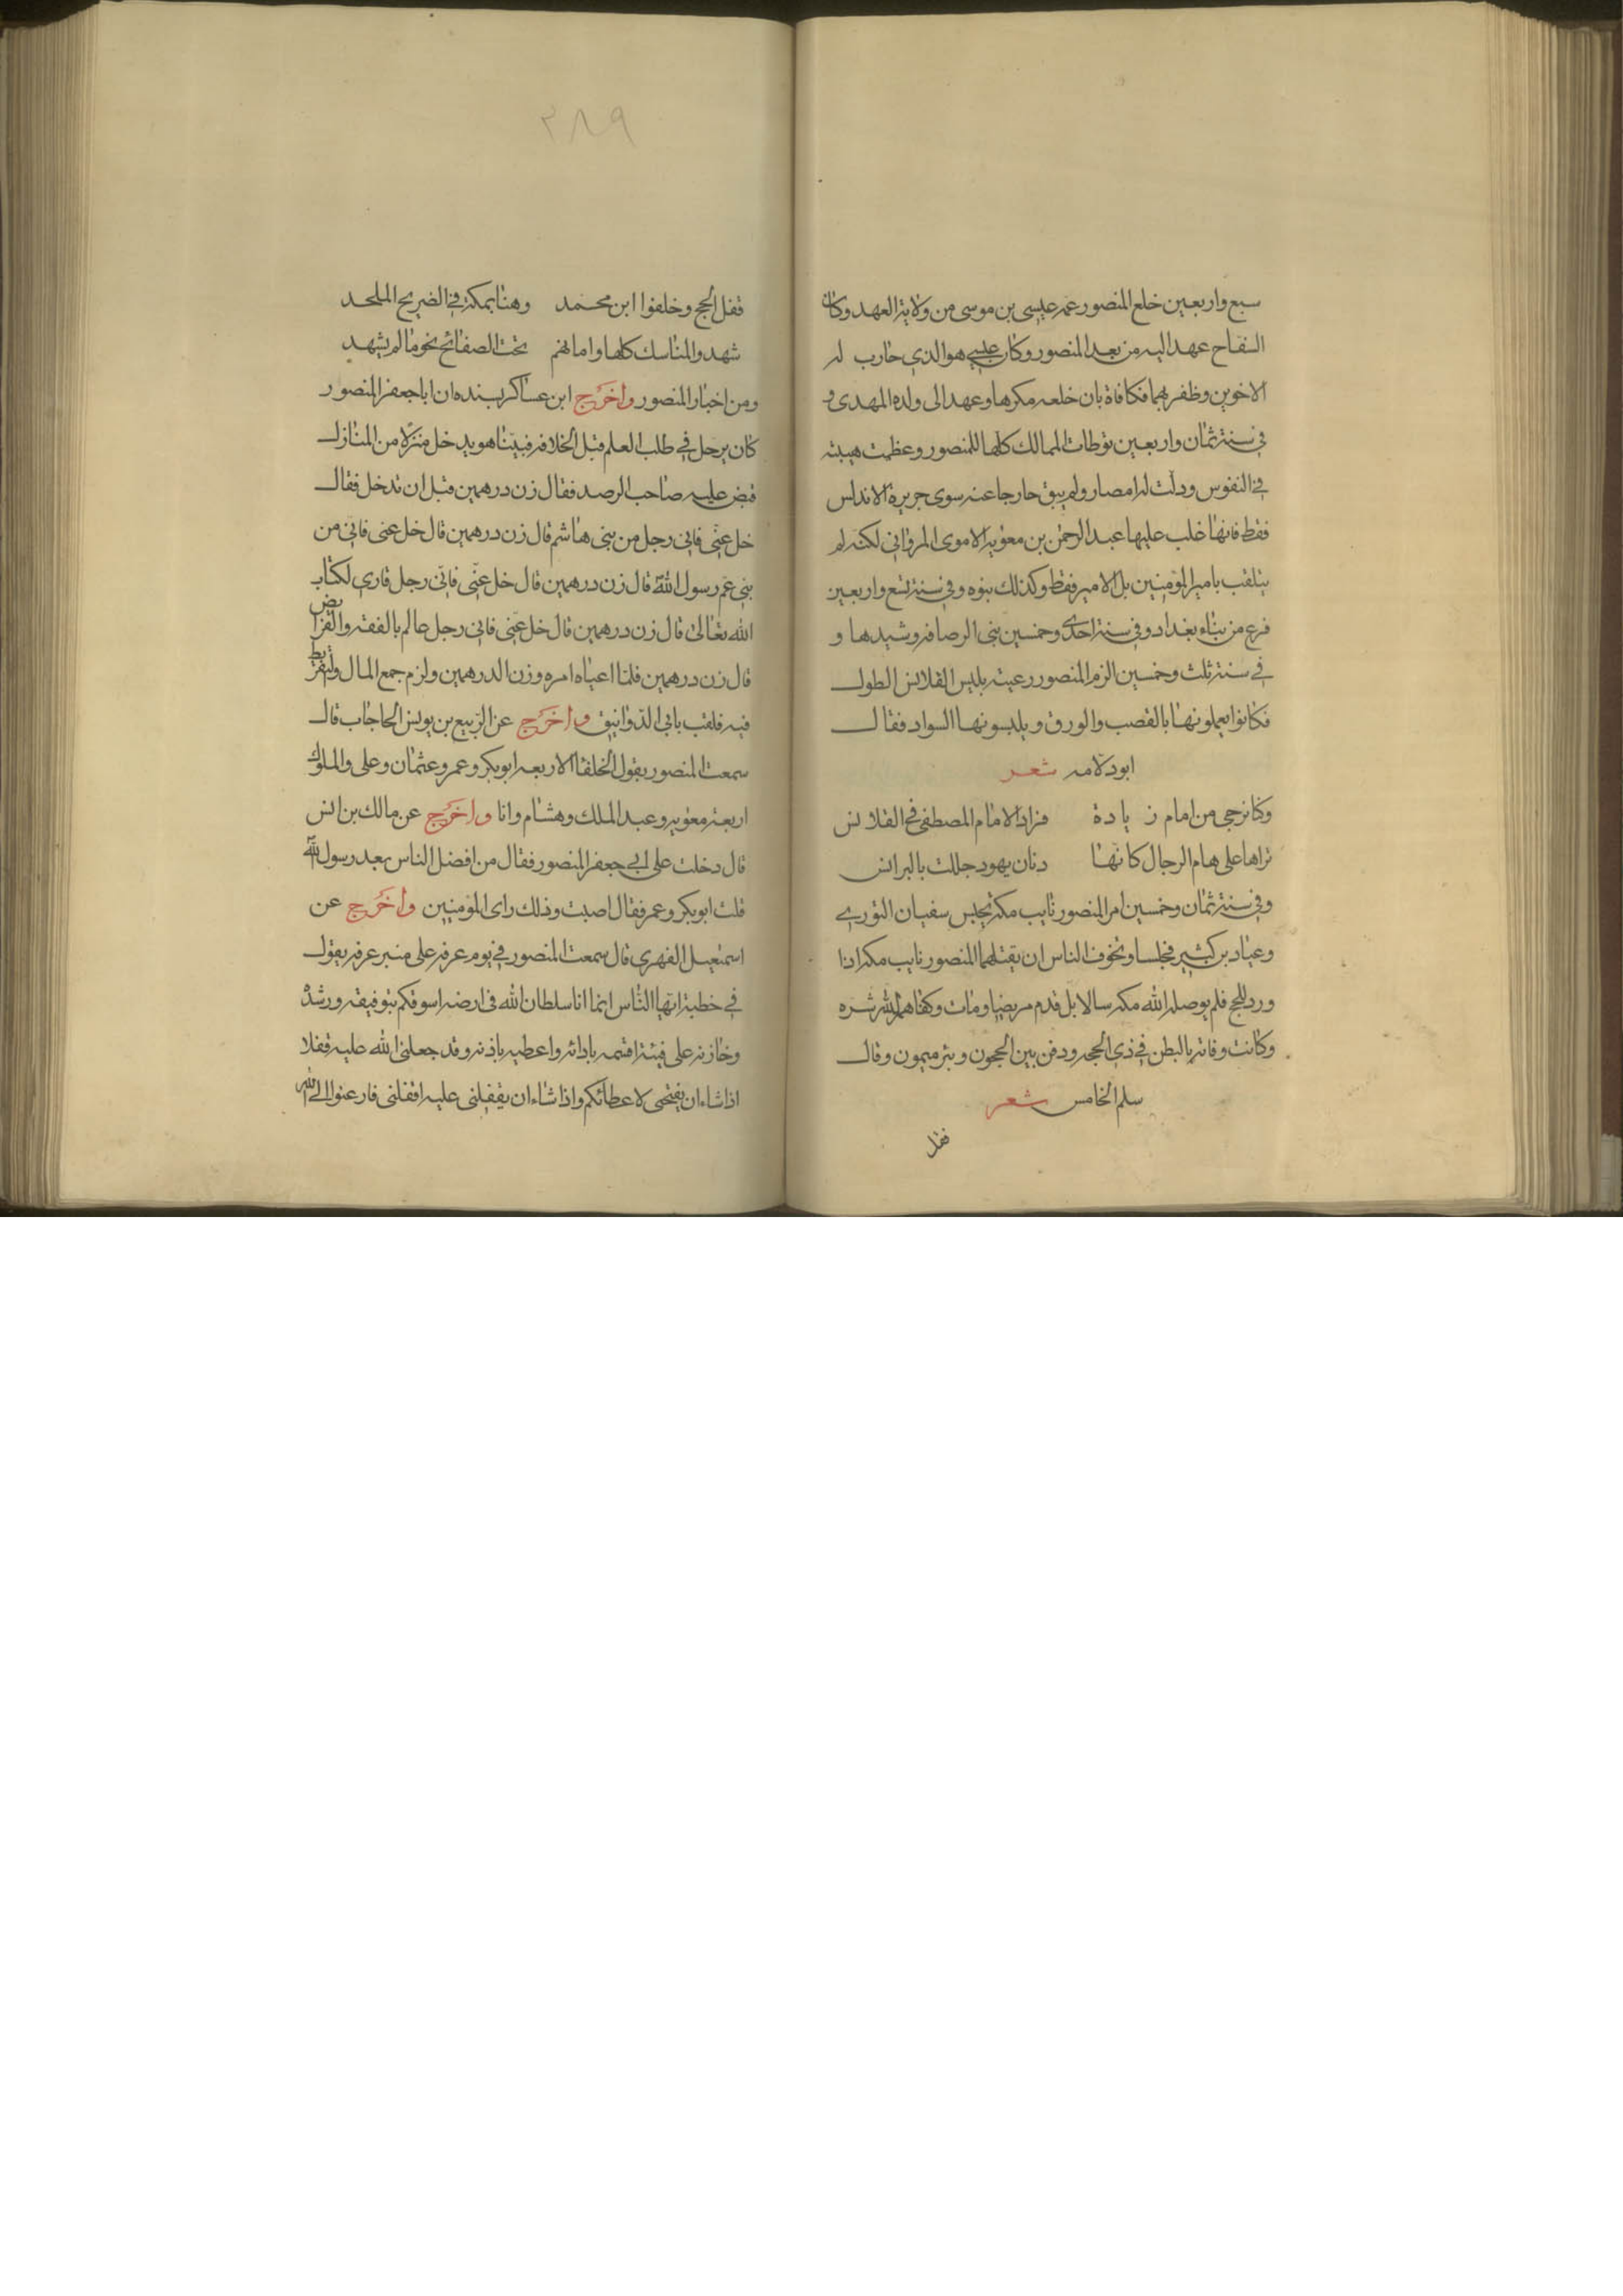 سبع واربعين خلع المنصور عمه عيسى بن موسى من ولاية العهد وكان
السفاح عهد اليه من بعد المنصور وكان عيسى هو الذي حارب له
الاخوين وظفر بهما فكافاه بان خلعه مكرها وعهد الى ولده المهدى و
فى سنة ثمان واربعين توطات الممالك كلها للمنصور وعظمت هيبته
فى النفوس ودلت له الامصار ولم يبق خارجا عنه سوى جزيرة الاندلس
فقط فانها غلب عليها عبد الرحمن بن معوية الاموى المروانى لكنه لم
يتلقب بامير المؤمنين بل الامير فقط وكذلك بنوه وفى سنة تسع واربعين
فرغ من بناء بغداد وفى سنة احدى وخمسين بنى الرصافه وشيدها و
فى سنة ثلث وخمسين الزم المنصور رعيته بلبس القلانس الطول
فكانوا يعملونها بالقصب والورق ويلبسونها السواد فقال
ابو دلامه شعر
وكنا نرجى من امام زيادة فزاد الامام المصطفى فى القلانس
تراها على هام الرجال كانها دنان يهود جللت بالبرانس
وفى سنة ثمان وخمسين امر المنصور نايب مكة بحبس سفيان الثوري
وعباد بن كثير فحبسا وتخوف الناس ان يقتلهما المنصور نايب مكه اذا
ورد للحج فلم يوصله الله مكه سالا بل قدم مريضا ومات وكفاهما الله شره
وكانت وفاته بالبطن فى ذى الحجه ودفن بين الحجون وبئر ميمون وقال
سلم الخاسر شعر
قفل
٢٨٩
قفل الحج وخلفوا ابن محمد وهنا بمكة فى الضريح الملحد
شهدوا المناسك كلها وامامهم تحت الصفائح محرما لم يشهد
ومن اخبار المنصور واخرج ابن عساكر بسنده ان ابا جعفر المنصور
كان يرحل فى طلب العلم قبل الخلافه فبينا هو يدخل منزلا من المنازل
قبض عليه صاحب الرصد فقال زن درهمين قبل ان تدخل فقال
خل عنى فانى رجل من بنى هاشم قال زن درهمين قال خل عنى فانى من
بنى عم رسول الله قال زن درهمين قال خل عنى فانى رجل قارى لكتاب
الله تعالى قال زن درهمين قال خل عنى فانى رجل عالم بالفقه والفرائض
قال زن درهمين فلما اعياه امره وزن الدرهمين ولزم جمع المال
فيه فلقب بابى الدوانيق واخرج عن الربيع بن يونس الحاجاب قال
سمعت المنصور يقول الخلفا الاربعه ابو بكر وعمر وعثمان وعلى والملوك
اربعة معويه وعبد الملك وهشام وانا واخرج عن مالك بن انس
قال دخلت على ابى جعفر المنصور فقال من افضل الناس بعد رسول الله
قلت ابو بكر وعمر فقال اصبت وذلك راى المؤمنين واخرج عن
اسمعيل الفهرى قال سمعت المنصور فى يوم عرفه على منبر عرفه يقول
فى خطبته ايها الناس انما انا سلطان الله فى ارضه اسوقكم بتوفيقه ورشده
وخازنه على فيئه اقتمه باداته واعطيه باذنه وقد جعلنى الله عليه قفلا
اذا شاء ان يفتحى لاعطائكم واذا شاء ان يقفلنى عليه اقفلنى فارغبوا الى الله